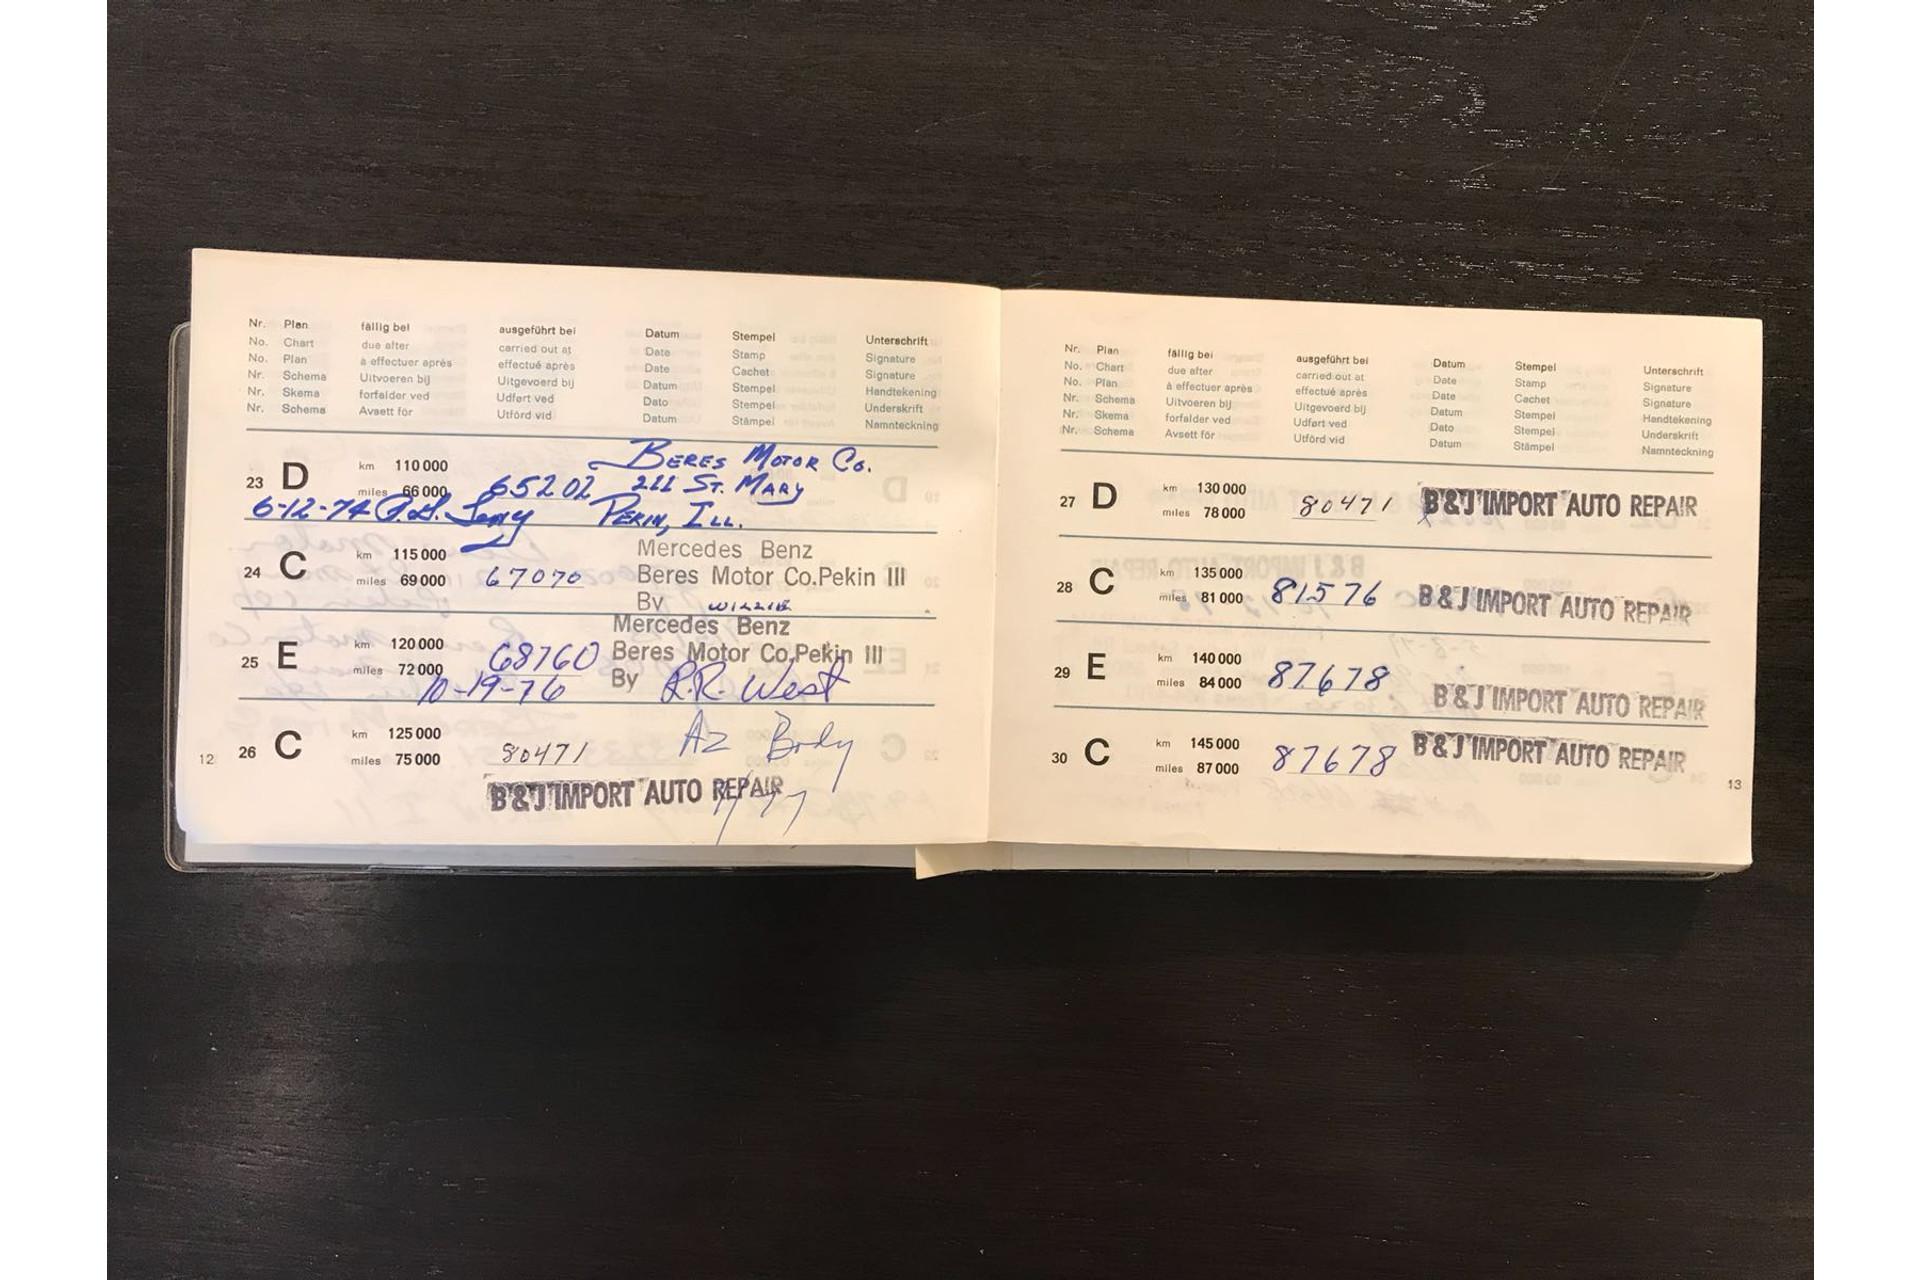 Nr. Plan fällig bei ausgeführt bei Datum Stempel Unterschrift
No. Chart due after carried out at Date Stamp Signature
No. Plan à effectuer après effectué après Date Cachet Signature
Nr. Schema Uitvoeren bij Uitgevoerd bij Datum Stempel Handtekening
Nr. Skema forfalder ved Udført ved Dato Stempel Underskrift
Nr. Schema Avsett för Utförd vid Datum Stämpel Namnteckning
BERES MOTOR CO.
23 D km 110 000
miles 66 000 65202 211 ST. MARY
6-12-74 PEKIN, ILL.
24 C km 115 000 Mercedes Benz
miles 69 000 67070 Beres Motor Co. Pekin Ill
By WILLIE
Mercedes Benz
25 E km 120 000 68760 Beres Motor Co. Pekin Ill
miles 72 000 By R.R. West
10-19-76
26 C km 125 000 80471 Az Body
miles 75 000
B & J IMPORT AUTO REPAIR
12
Nr. Plan fällig bei ausgeführt bei Datum Stempel Unterschrift
No. Chart due after carried out at Date Stamp Signature
No. Plan à effectuer après effectué après Date Cachet Signature
Nr. Schema Uitvoeren bij Uitgevoerd bij Datum Stempel Handtekening
Nr. Skema forfalder ved Udført ved Dato Stempel Underskrift
Nr. Schema Avsett för Utförd vid Datum Stämpel Namnteckning
27 D km 130 000 80471 B & J IMPORT AUTO REPAIR
miles 78 000
28 C km 135 000 81576 B & J IMPORT AUTO REPAIR
miles 81 000
29 E km 140 000 87678 B & J IMPORT AUTO REPAIR
miles 84 000
30 C km 145 000 87678 B & J IMPORT AUTO REPAIR
miles 87 000
13